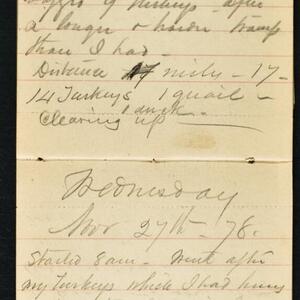 of turkeys after
a longer & harder tramp
than I had -
Distance 17 miles - 17 -
14 Turkeys 1 quail -
1 duck.
Clearing up
Wednesday
Nov 27th - 78.
Started 8 am - Went after
my turkeys which I had hung